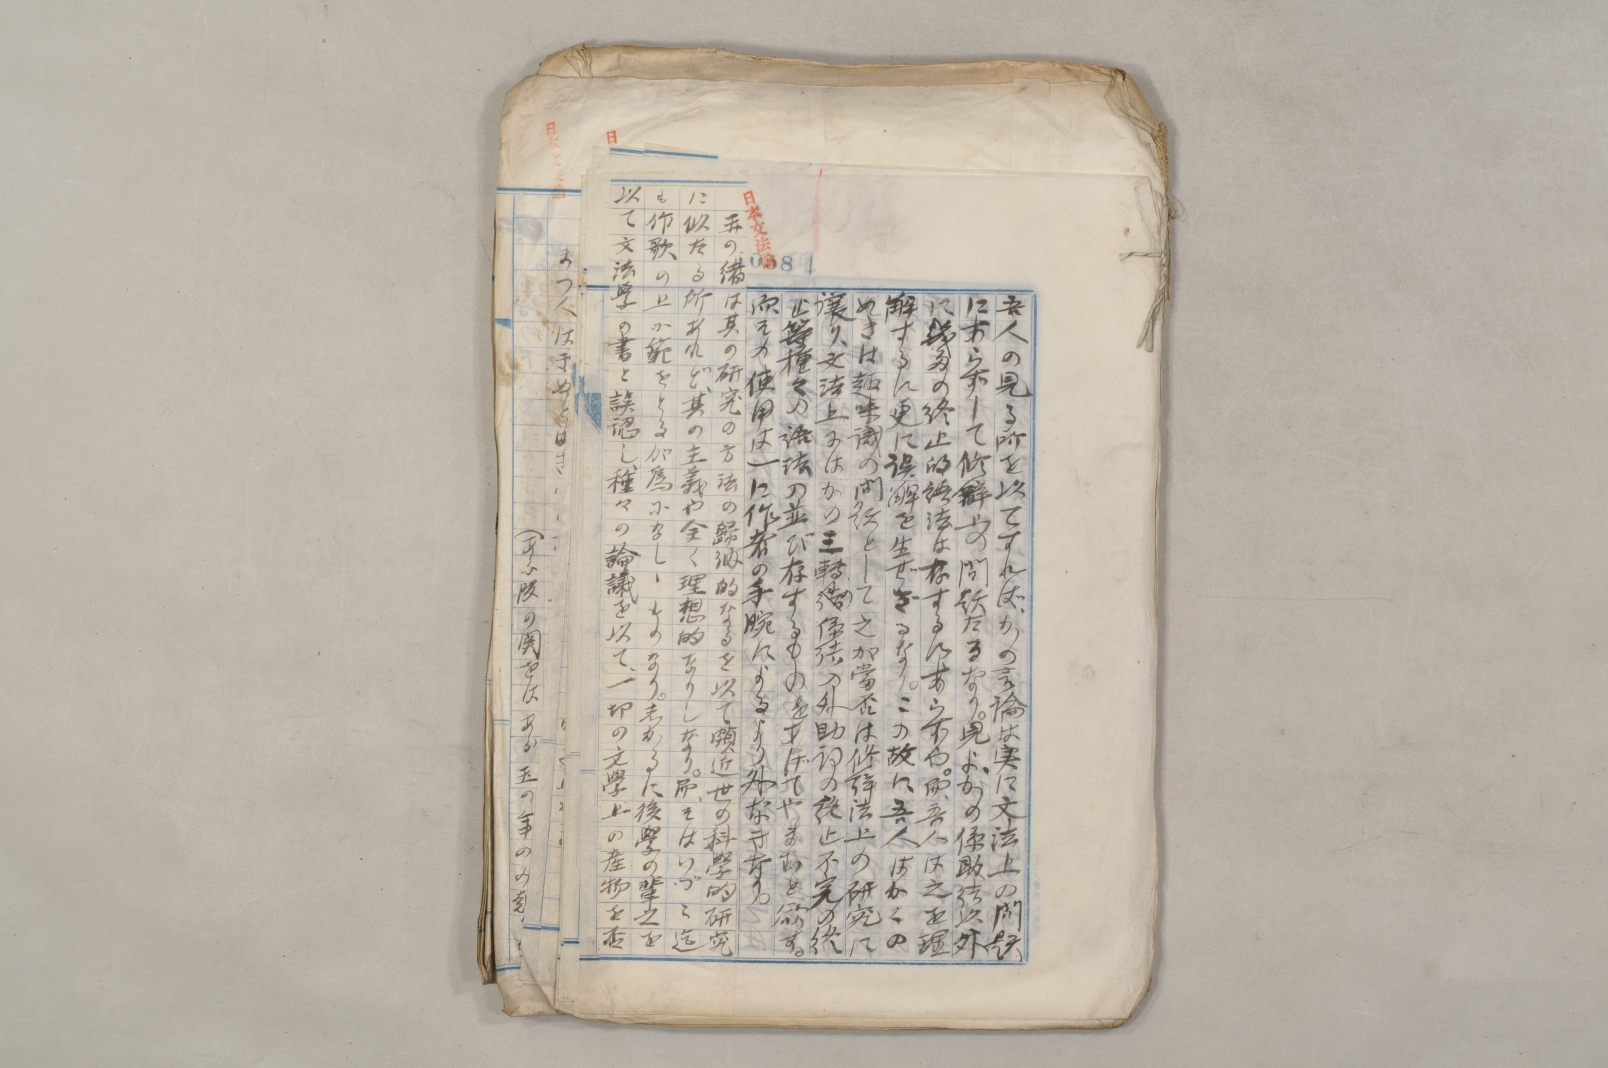 吾人の見る所を以てすれば、かの言論は実に文法上の問題
にあらずして修辞上の問題たるなり。見よ、かの係取結以外
に幾多の終止的語法は存するにあらずや。而、吾人は之を理
解するに更に誤解を生ぜざるなり。この故に吾人はかくの
めきは趣味議の問題として之が當否は修辞法上の研究に
譲り、文法上にはかの三轉の係結の外助詞の終止不完の終
止等種々の語法の並び存するものをすげてやまむと欲す。
而その使用は一に作者の手腕によるより外なきなり。
日本文法論
1058
玉の緒は其の研究の方法の歸納的なるを以て頗近世の科學的研究
に似たる所あれど、其の主義や全く理想的なりしなり。而、そはいづこ迄
も作歌の上に範をとるが爲になししものなり。志かるに後學の輩之を
以て文法學の書と誤認し、種々の論議を以て、一切の文學上の産物を否
日
日本文法論
まつ人は
(あふ坂の関をは あら玉の年の